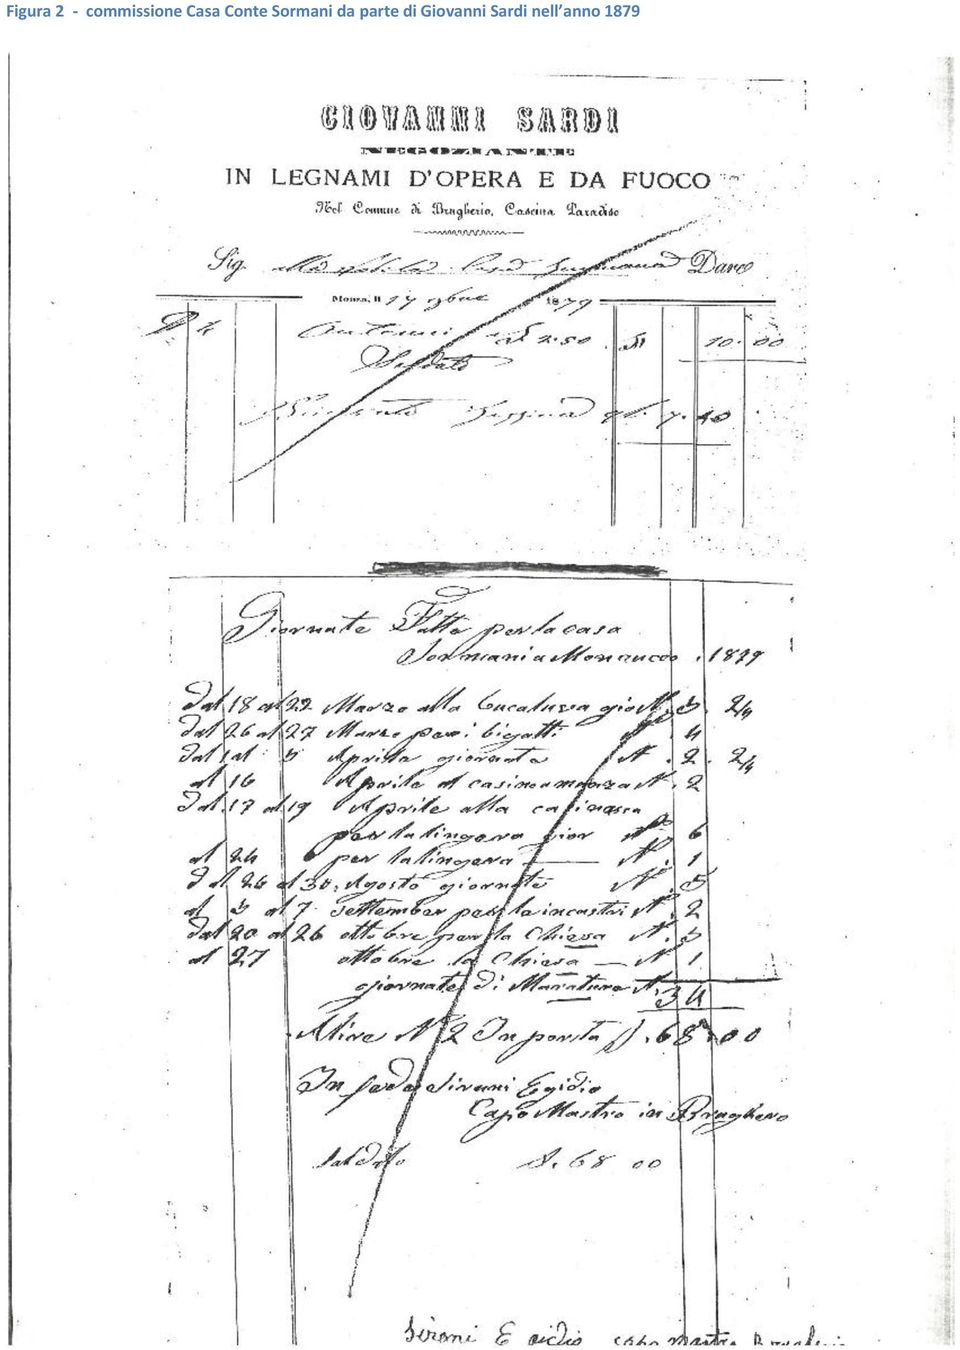 Figura 2 - commissione Casa Conte Sormani da parte di Giovanni Sardi nell'anno 1879
GIOVANNI SARDI
NEGOZIANTE
IN LEGNAMI D'OPERA E DA FUOCO
Nel Comune di Brugherio, Cascina Paradiso
Sig. alla Casa Dare
Monza, il 17 1879
4 2.50 10.00
Saldato
7.40
Giornate Fatte per la casa
Sormani a Moncucco 1879
Dal 18 al 22 Marzo alla gior N. 3 2/4
Dal 26 al 27 Marzo per i bigatti N 4
Dal 1 al 3 Aprile giornate N. 2. 2/4
al 16 Aprile al N. 2
Dal 17 al 19 Aprile alla
per la lingera gior N 6
al 24 per la lingera N. 1
Dal 26 al 30, Agosto giornate N. 5
al 3 al 7 Settember per la incastri N. 2
Dal 20 al 26 ottobre per la Chiesa N. 5
al 27 ottobre la Chiesa N 1
giornate Di Maratura N. 34
A lire N 2 Inporta f. 68 00
In fede Sironi Egidio
Capo Mastro in Brugherio
Saldato 68 00
Sironi Egidio capo mastro